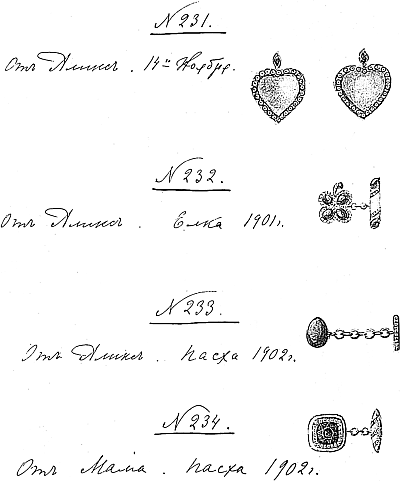 N 231.
Отъ Аликсъ. 14го Ноября.
N 232.
Отъ Аликсъ. Елка 1901 г.
N 233.
Отъ Аликсъ. Пасха 1902 г.
N 234.
Отъ Мама. Пасха 1902 г.